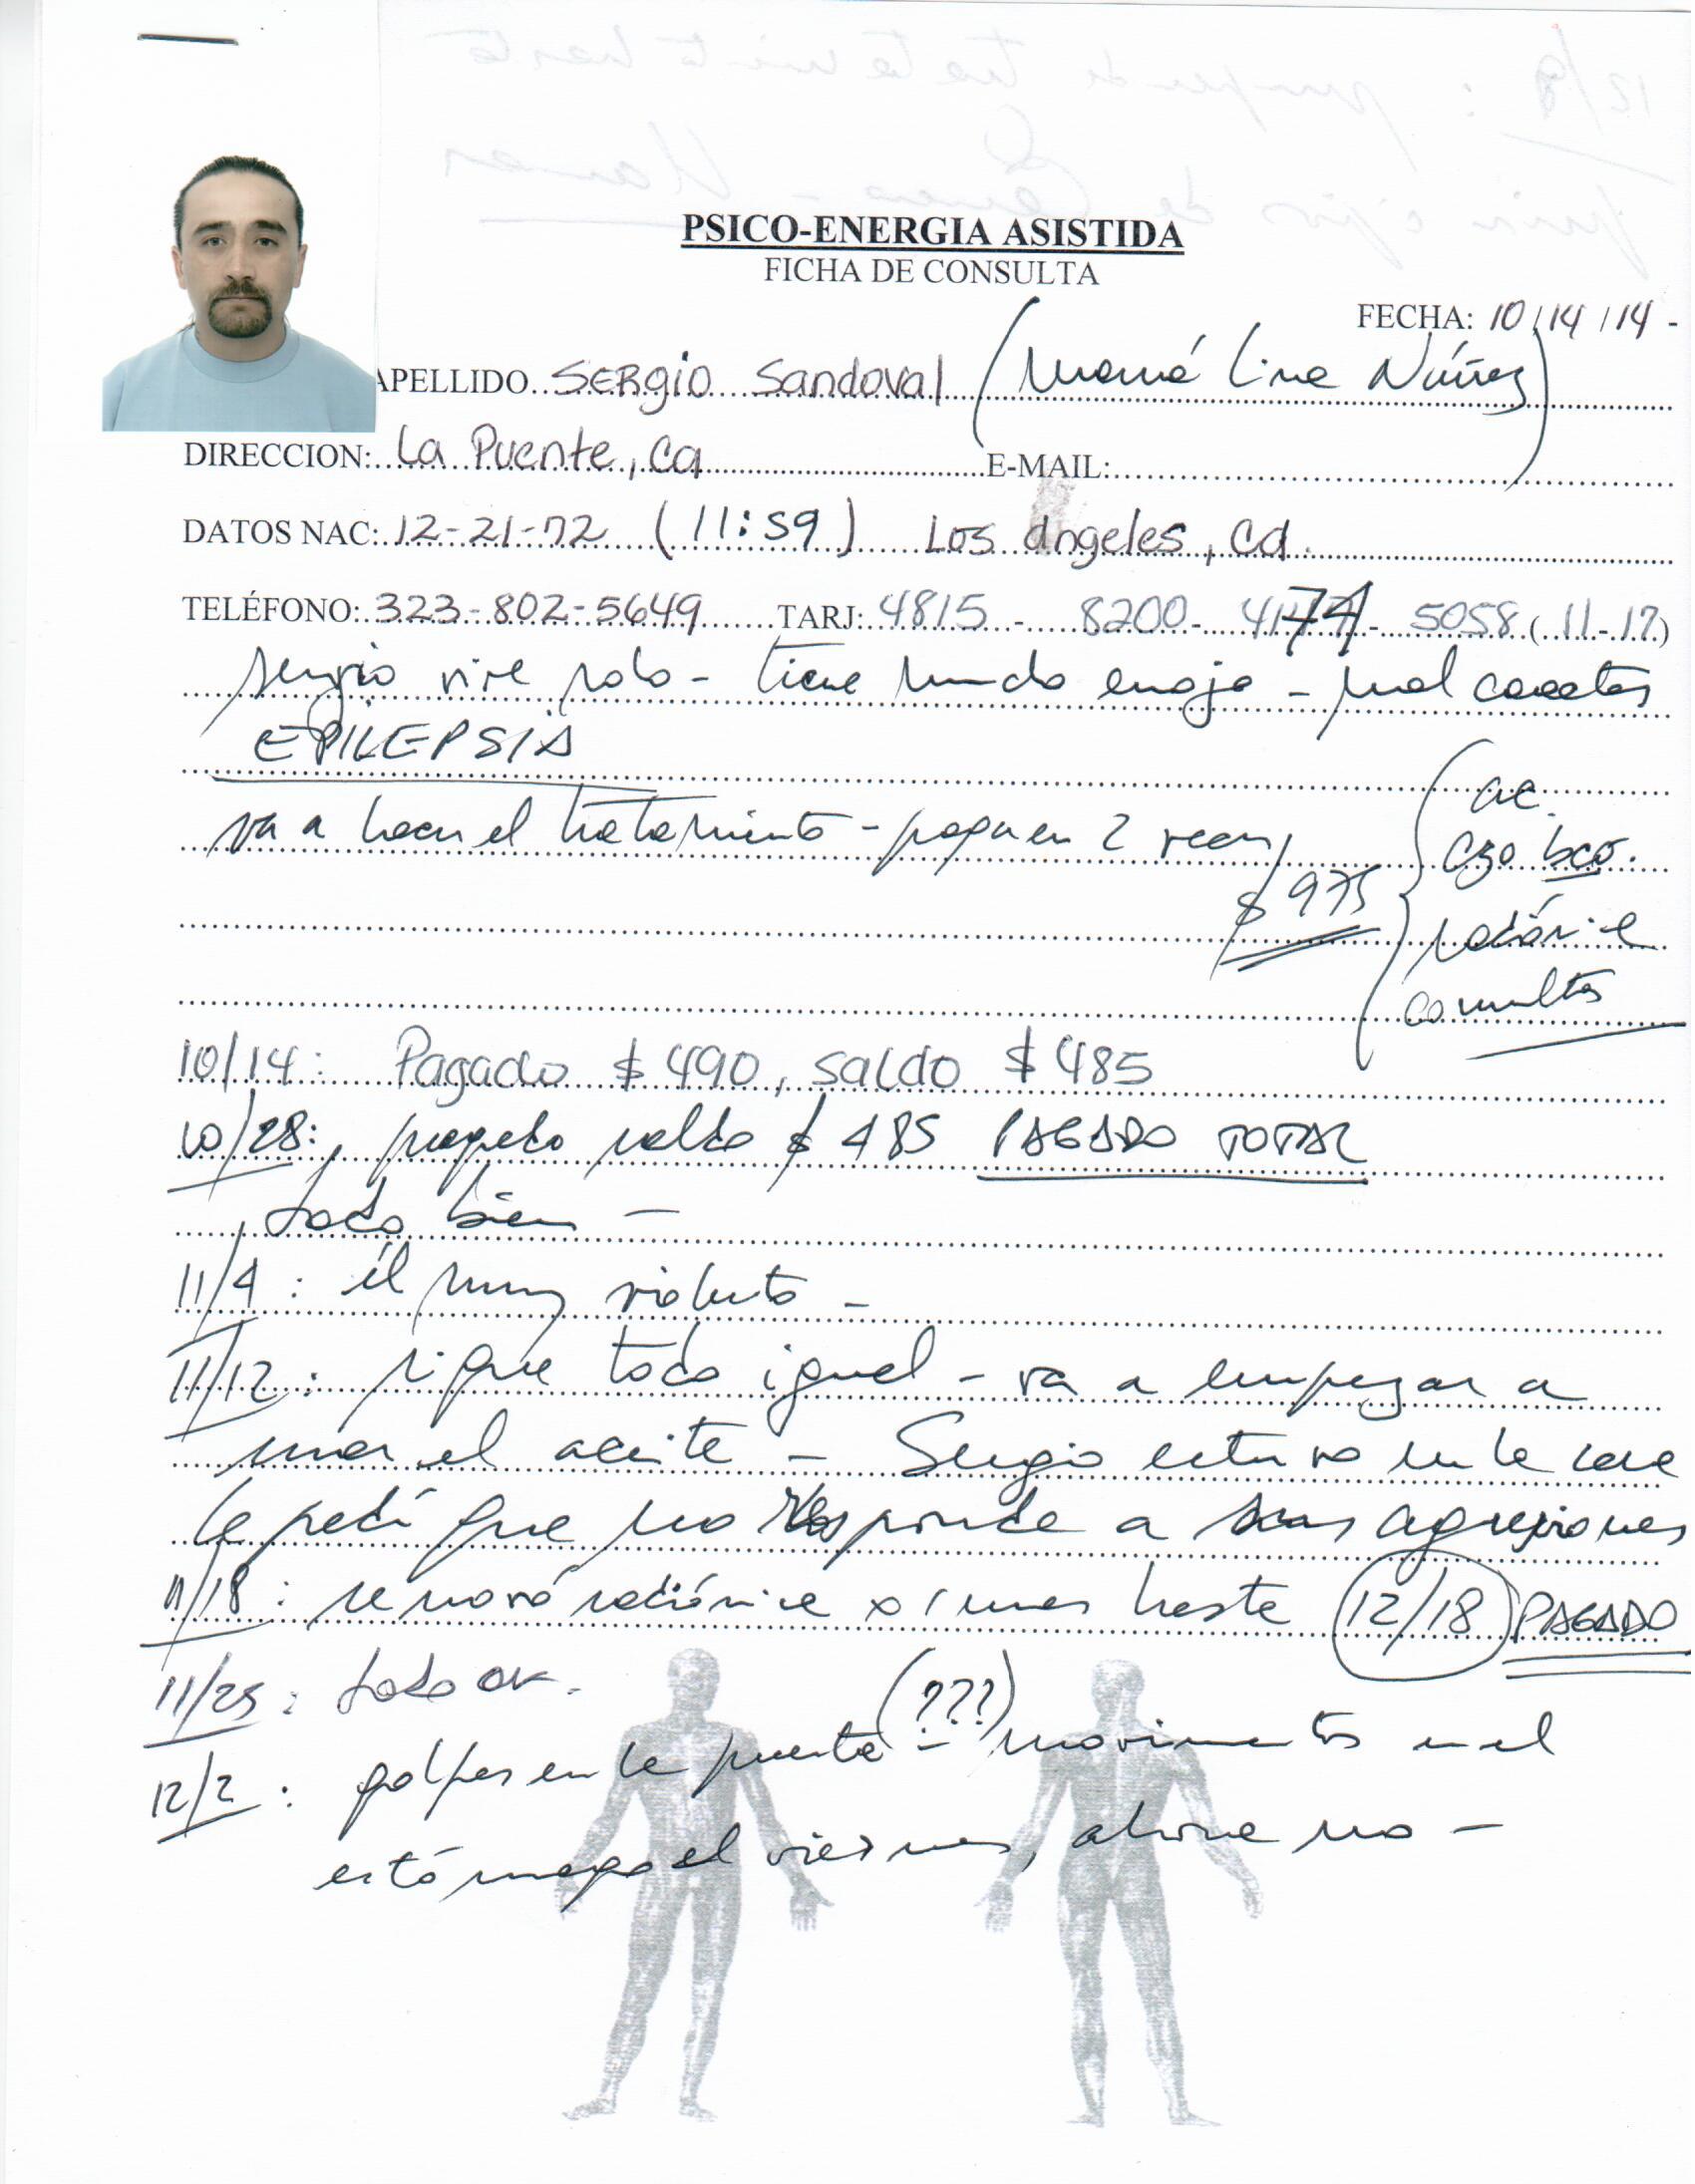 PSICO-ENERGIA ASISTIDA
FICHA DE CONSULTA
FECHA: 10/14/14 -
APELLIDO.. SERgio Sandoval (Mamá Lina Núñez)
DIRECCION: La Puente, Ca E-MAIL:
DATOS NAC: 12-21-72 (11:59) Los Angeles, Ca.
TELÉFONO: 323-802-5649 TARJ: 4815 - 8200 - 4174 - 5058 (11-17)
Sergio vive solo - tiene mucho enojo - mal caracter
EPILEPSIA
va a hacer el tratamiento - paga en 2 veces
$975
ac.
bco.
radiónica
consultas
10/14: Pagado $490, saldo $485
10/28: pagado saldo $485 PAGADO TOTAL
todo bien -
11/4: él muy violento -
11/12: sigue todo igual - va a empezar a
usar el aceite - Sergio estuvo en la casa
le pedí que no responda a sus agresiones
11/18: renovó radiónica x 1 mes hasta 12/18 PAGADO
11/25: todo ok.
12/2: golpes en la puerta (???) - movimientos en el
estómago el viernes, ahora no -